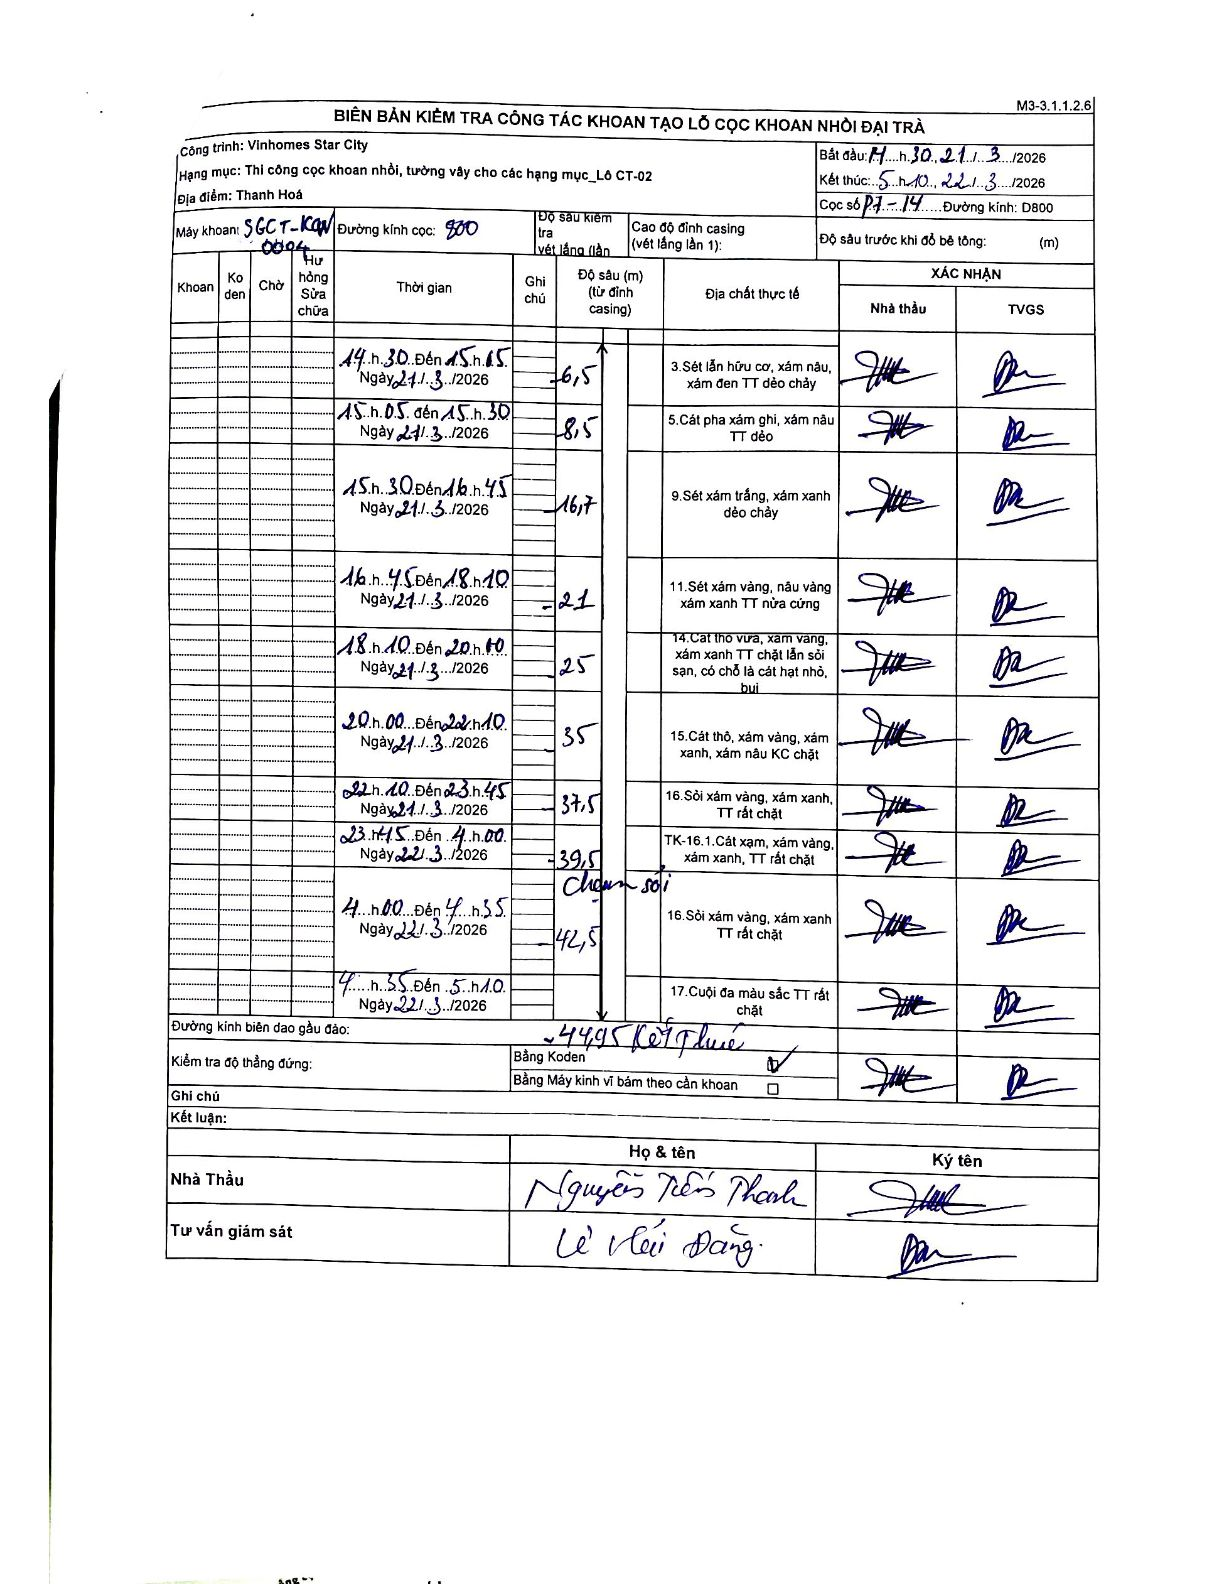 M3-3.1.1.2.6
BIÊN BẢN KIỂM TRA CÔNG TÁC KHOAN TẠO LỖ CỌC KHOAN NHỒI ĐẠI TRÀ
Công trình: Vinhomes Star City
Hạng mục: Thi công cọc khoan nhồi, tường vây cho các hạng mục_Lô CT-02
Địa điểm: Thanh Hoá
Bắt đầu: 14 h 30, 21/ 3 /2026
Kết thúc: 5 h 10, 22/ 3 /2026
Cọc số P7-14 Đường kính: D800
Máy khoan: SGCT-KCN 0004
Đường kính cọc: 800
Độ sâu kiểm tra vét lắng (lần
Cao độ đỉnh casing (vét lắng lần 1):
Độ sâu trước khi đổ bê tông: (m)
Khoan
Ko den
Chờ
Hư hỏng Sửa chữa
Thời gian
Ghi chú
Độ sâu (m) (từ đỉnh casing)
Địa chất thực tế
XÁC NHẬN
Nhà thầu
TVGS
14.h.30.Đến 15.h.15.
Ngày 21/.3./2026
-6,5
3.Sét lẫn hữu cơ, xám nâu, xám đen TT dẻo chảy
15.h.05. đến 15.h.30
Ngày 21/.3./2026
8,5
5.Cát pha xám ghi, xám nâu TT dẻo
15.h.30.Đến 16.h.45
Ngày 21/.3./2026
-16,7
9.Sét xám trắng, xám xanh dẻo chảy
16.h.45.Đến 18.h.10.
Ngày 21/.3./2026
-21
11.Sét xám vàng, nâu vàng xám xanh TT nửa cứng
18.h.10.Đến 20.h.00.
Ngày 21/.3./2026
25
14.Cát thô vừa, xám vàng, xám xanh TT chặt lẫn sỏi sạn, có chỗ là cát hạt nhỏ, bụi
20.h.00...Đến 22.h.10.
Ngày 21/.3./2026
35
15.Cát thô, xám vàng, xám xanh, xám nâu KC chặt
22.h.10..Đến 23.h.45
Ngày 21/.3./2026
-37,5
16.Sỏi xám vàng, xám xanh, TT rất chặt
23.h.45.Đến .4.h.00.
Ngày 22/.3./2026
-39,5
TK-16.1.Cát xạm, xám vàng, xám xanh, TT rất chặt
Chạm sỏi
4...h00...Đến 4...h.35.
Ngày 22/.3./2026
-42,5
16.Sỏi xám vàng, xám xanh TT rất chặt
4....h.35.Đến .5..h10.
Ngày 22/.3./2026
17.Cuội đa màu sắc TT rất chặt
Đường kính biên dao gầu đào:
-44,95 Kết Thúc
Kiểm tra độ thẳng đứng:
Bằng Koden ☑
Bằng Máy kinh vĩ bám theo cần khoan ☐
Ghi chú
Kết luận:
Họ & tên
Ký tên
Nhà Thầu
Nguyễn Tiến Thanh
Tư vấn giám sát
Lê Hữu Đăng.